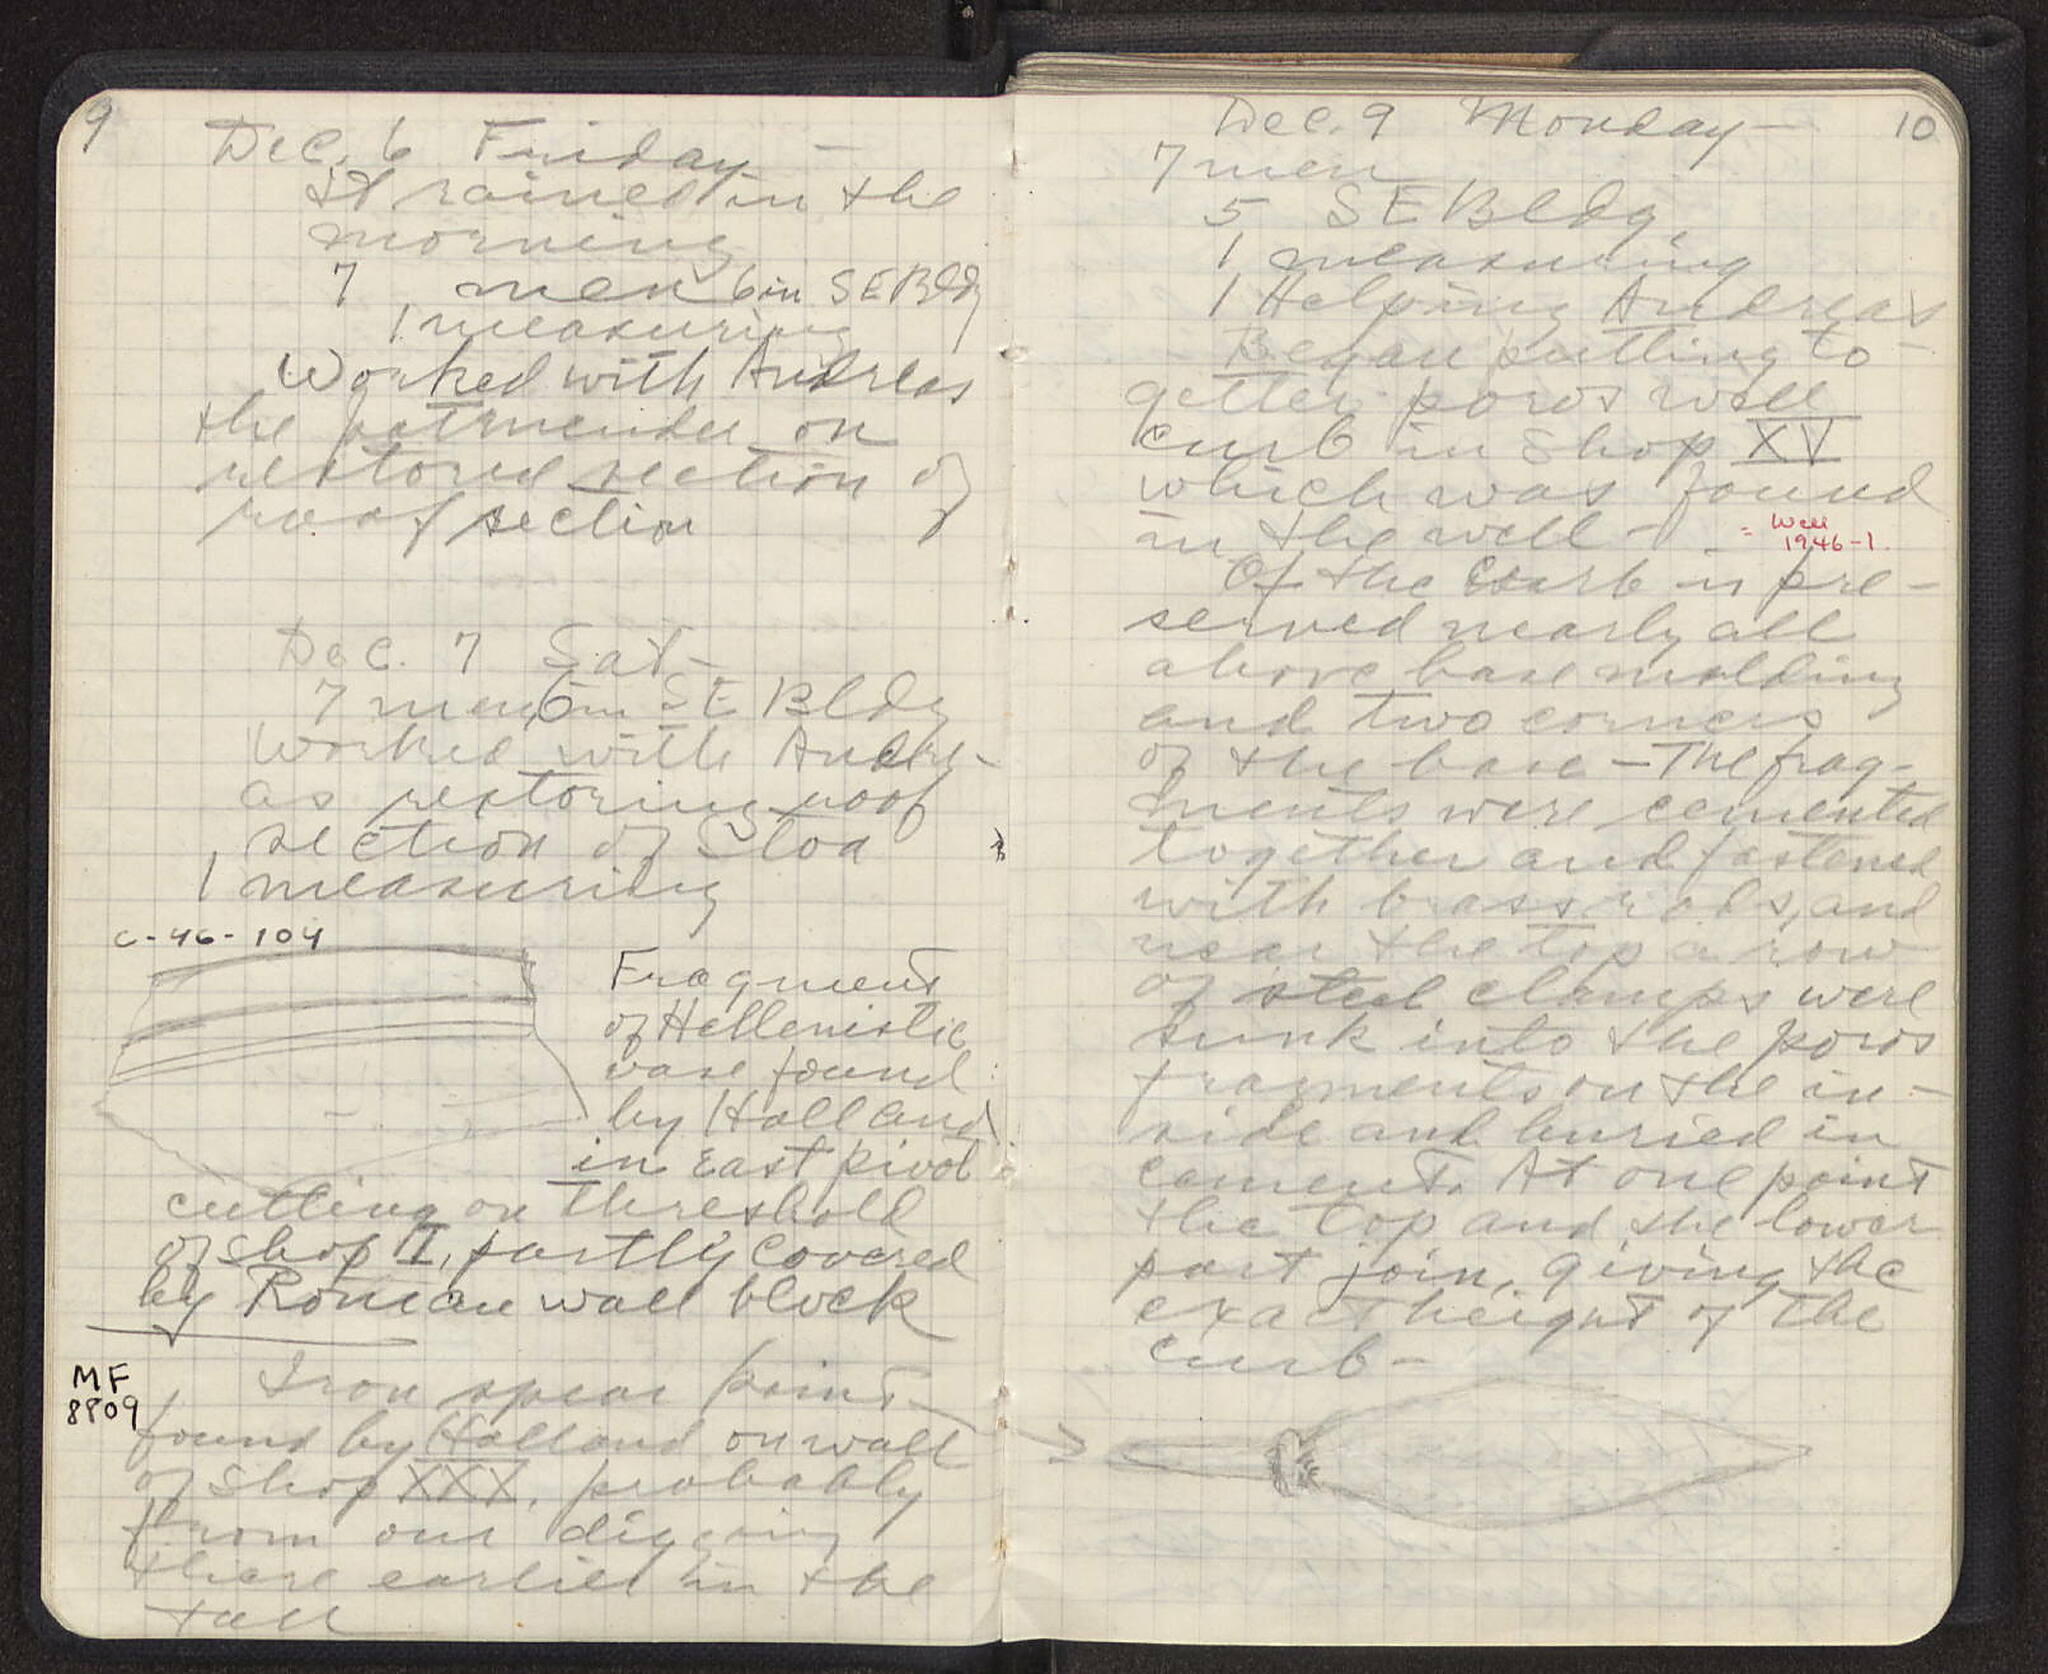 9
Dec. 6 Friday —
It rained in the
morning
7 men 6 in SE Bldg
1 measuring
Worked with Andreas
the potmender on
restored section of
roof section
Dec. 7 Sat-
7 men, 6 in SE Bldg
Worked with Andre-
as restoring roof
section of Stoa
1 measuring
C-46-104
Fragment
of Hellenistic
vase found
by Holland
in East pivot
cutting on threshold
of Shop II, partly covered
by Roman wall block
MF
8809
Iron spear point —
found by Holland on wall
of Shop XXX, probably
from our digging
there earlier in the
fall
10
Dec. 9 Monday —
7 men
5 SE Bldg,
1 measuring
1 Helping Andreas
Began putting to-
gether poros well
curb in Shop XV
which was found
in the well —
= Well
1946-1.
Of the curb is pre-
served nearly all
above base molding
and two corners
of the base — The frag-
ments were cemented
together and fastened
with brass rods, and
near the top a row
of steel clamps were
sunk into the poros
fragments on the in-
side and buried in
cement. At one point
the top and the lower
part join, giving the
exact height of the
curb —